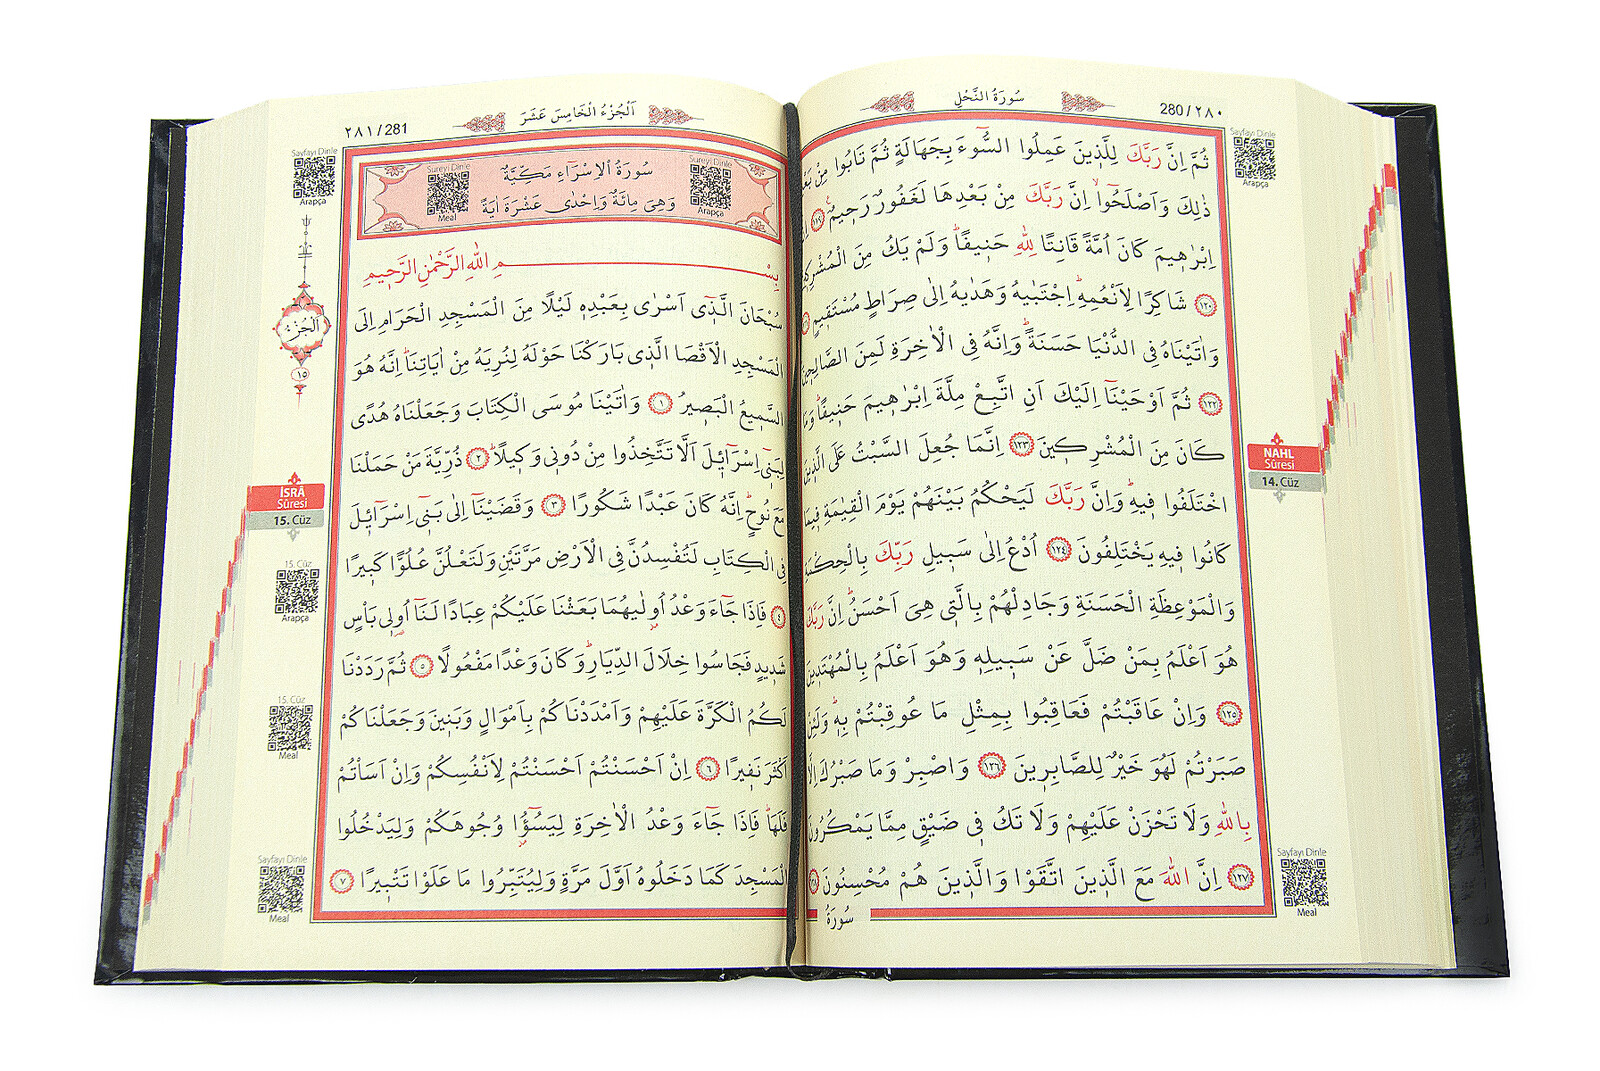 سُورَةُ النَّحْلِ
280/٢٨٠
ثُمَّ اِنَّ رَبَّكَ لِلَّذ۪ينَ عَمِلُوا السُّٓوءَ بِجَهَالَةٍ ثُمَّ تَابُوا مِنْ
ذٰلِكَ وَاَصْلَحُٓوا اِنَّ رَبَّكَ مِنْ بَعْدِهَا لَغَفُورٌ رَح۪يمٌ ١١٩
اِبْرٰه۪يمَ كَانَ اُمَّةً قَانِتًا لِلّٰهِ حَن۪يفًاۜ وَلَمْ يَكُ مِنَ الْمُشْرِك۪ينَ
١٢٠ شَاكِرًا لِاَنْعُمِهِۜ اِجْتَبٰيهُ وَهَدٰيهُ اِلٰى صِرَاطٍ مُسْتَق۪يمٍ
وَاٰتَيْنَاهُ فِي الدُّنْيَا حَسَنَةًۜ وَاِنَّهُ فِي الْاٰخِرَةِ لَمِنَ الصَّالِح۪ينَ
١٢٢ ثُمَّ اَوْحَيْنَٓا اِلَيْكَ اَنِ اتَّبِعْ مِلَّةَ اِبْرٰه۪يمَ حَن۪يفًاۜ وَمَا
كَانَ مِنَ الْمُشْرِك۪ينَ ١٢٣ اِنَّمَا جُعِلَ السَّبْتُ عَلَى الَّذ۪ينَ
اخْتَلَفُوا ف۪يهِۜ وَاِنَّ رَبَّكَ لَيَحْكُمُ بَيْنَهُمْ يَوْمَ الْقِيٰمَةِ ف۪يمَا
كَانُوا ف۪يهِ يَخْتَلِفُونَ ١٢٤ اُدْعُ اِلٰى سَب۪يلِ رَبِّكَ بِالْحِكْمَةِ
وَالْمَوْعِظَةِ الْحَسَنَةِ وَجَادِلْهُمْ بِالَّت۪ي هِيَ اَحْسَنُۜ اِنَّ رَبَّكَ
هُوَ اَعْلَمُ بِمَنْ ضَلَّ عَنْ سَب۪يلِه۪ وَهُوَ اَعْلَمُ بِالْمُهْتَد۪ينَ
١٢٥ وَاِنْ عَاقَبْتُمْ فَعَاقِبُوا بِمِثْلِ مَا عُوقِبْتُمْ بِه۪ۜ وَلَئِنْ
صَبَرْتُمْ لَهُوَ خَيْرٌ لِلصَّابِر۪ينَ ١٢٦ وَاصْبِرْ وَمَا صَبْرُكَ اِلَّا
بِاللّٰهِ وَلَا تَحْزَنْ عَلَيْهِمْ وَلَا تَكُ ف۪ي ضَيْقٍ مِمَّا يَمْكُرُونَ
١٢٧ اِنَّ اللّٰهَ مَعَ الَّذ۪ينَ اتَّقَوْا وَالَّذ۪ينَ هُمْ مُحْسِنُونَ ١٢٨
سُورَةُ
Sayfayı Dinle
Arapça
NAHL
Sûresi
14. Cüz
Sayfayı Dinle
Meal
اَلْجُزْءُ الْخَامِسَ عَشَرَ
٢٨١/281
سُورَةُ الْاِسْرَٓاءِ مَكِّيَّةٌ
وَهِيَ مِائَةٌ وَاِحْدٰى عَشْرَةَ اٰيَةً
Sureyi Dinle
Meal
Sureyi Dinle
Arapça
بِسْمِ اللّٰهِ الرَّحْمٰنِ الرَّح۪يمِ
سُبْحَانَ الَّذ۪ٓي اَسْرٰى بِعَبْدِه۪ لَيْلًا مِنَ الْمَسْجِدِ الْحَرَامِ اِلَى
الْمَسْجِدِ الْاَقْصَا الَّذ۪ي بَارَكْنَا حَوْلَهُ لِنُرِيَهُ مِنْ اٰيَاتِنَاۜ اِنَّهُ هُوَ
السَّم۪يعُ الْبَص۪يرُ ١ وَاٰتَيْنَا مُوسَى الْكِتَابَ وَجَعَلْنَاهُ هُدًى
لِبَن۪ٓي اِسْرَٓائ۪لَ اَلَّا تَتَّخِذُوا مِنْ دُون۪ي وَك۪يلًاۜ ٢ ذُرِّيَّةَ مَنْ حَمَلْنَا
مَعَ نُوحٍۜ اِنَّهُ كَانَ عَبْدًا شَكُورًا ٣ وَقَضَيْنَٓا اِلٰى بَن۪ٓي اِسْرَٓائ۪لَ
فِي الْكِتَابِ لَتُفْسِدُنَّ فِي الْاَرْضِ مَرَّتَيْنِ وَلَتَعْلُنَّ عُلُوًّا كَب۪يرًا
٤ فَاِذَا جَٓاءَ وَعْدُ اُو۫لٰيهُمَا بَعَثْنَا عَلَيْكُمْ عِبَادًا لَنَٓا اُو۬ل۪ي بَأْسٍ
شَد۪يدٍ فَجَاسُوا خِلَالَ الدِّيَارِۜ وَكَانَ وَعْدًا مَفْعُولًا ٥ ثُمَّ رَدَدْنَا
لَكُمُ الْكَرَّةَ عَلَيْهِمْ وَاَمْدَدْنَاكُمْ بِاَمْوَالٍ وَبَن۪ينَ وَجَعَلْنَاكُمْ
اَكْثَرَ نَف۪يرًا ٦ اِنْ اَحْسَنْتُمْ اَحْسَنْتُمْ لِاَنْفُسِكُمْ وَاِنْ اَسَأْتُمْ
فَلَهَاۜ فَاِذَا جَٓاءَ وَعْدُ الْاٰخِرَةِ لِيَسُٓؤُ۫ا وُجُوهَكُمْ وَلِيَدْخُلُوا
الْمَسْجِدَ كَمَا دَخَلُوهُ اَوَّلَ مَرَّةٍ وَلِيُتَبِّرُوا مَا عَلَوْا تَتْب۪يرًا ٧
Sayfayı Dinle
Arapça
اَلْجُزْءُ
١٥
İSRÂ
Sûresi
15. Cüz
15. Cüz
Arapça
15. Cüz
Meal
Sayfayı Dinle
Meal